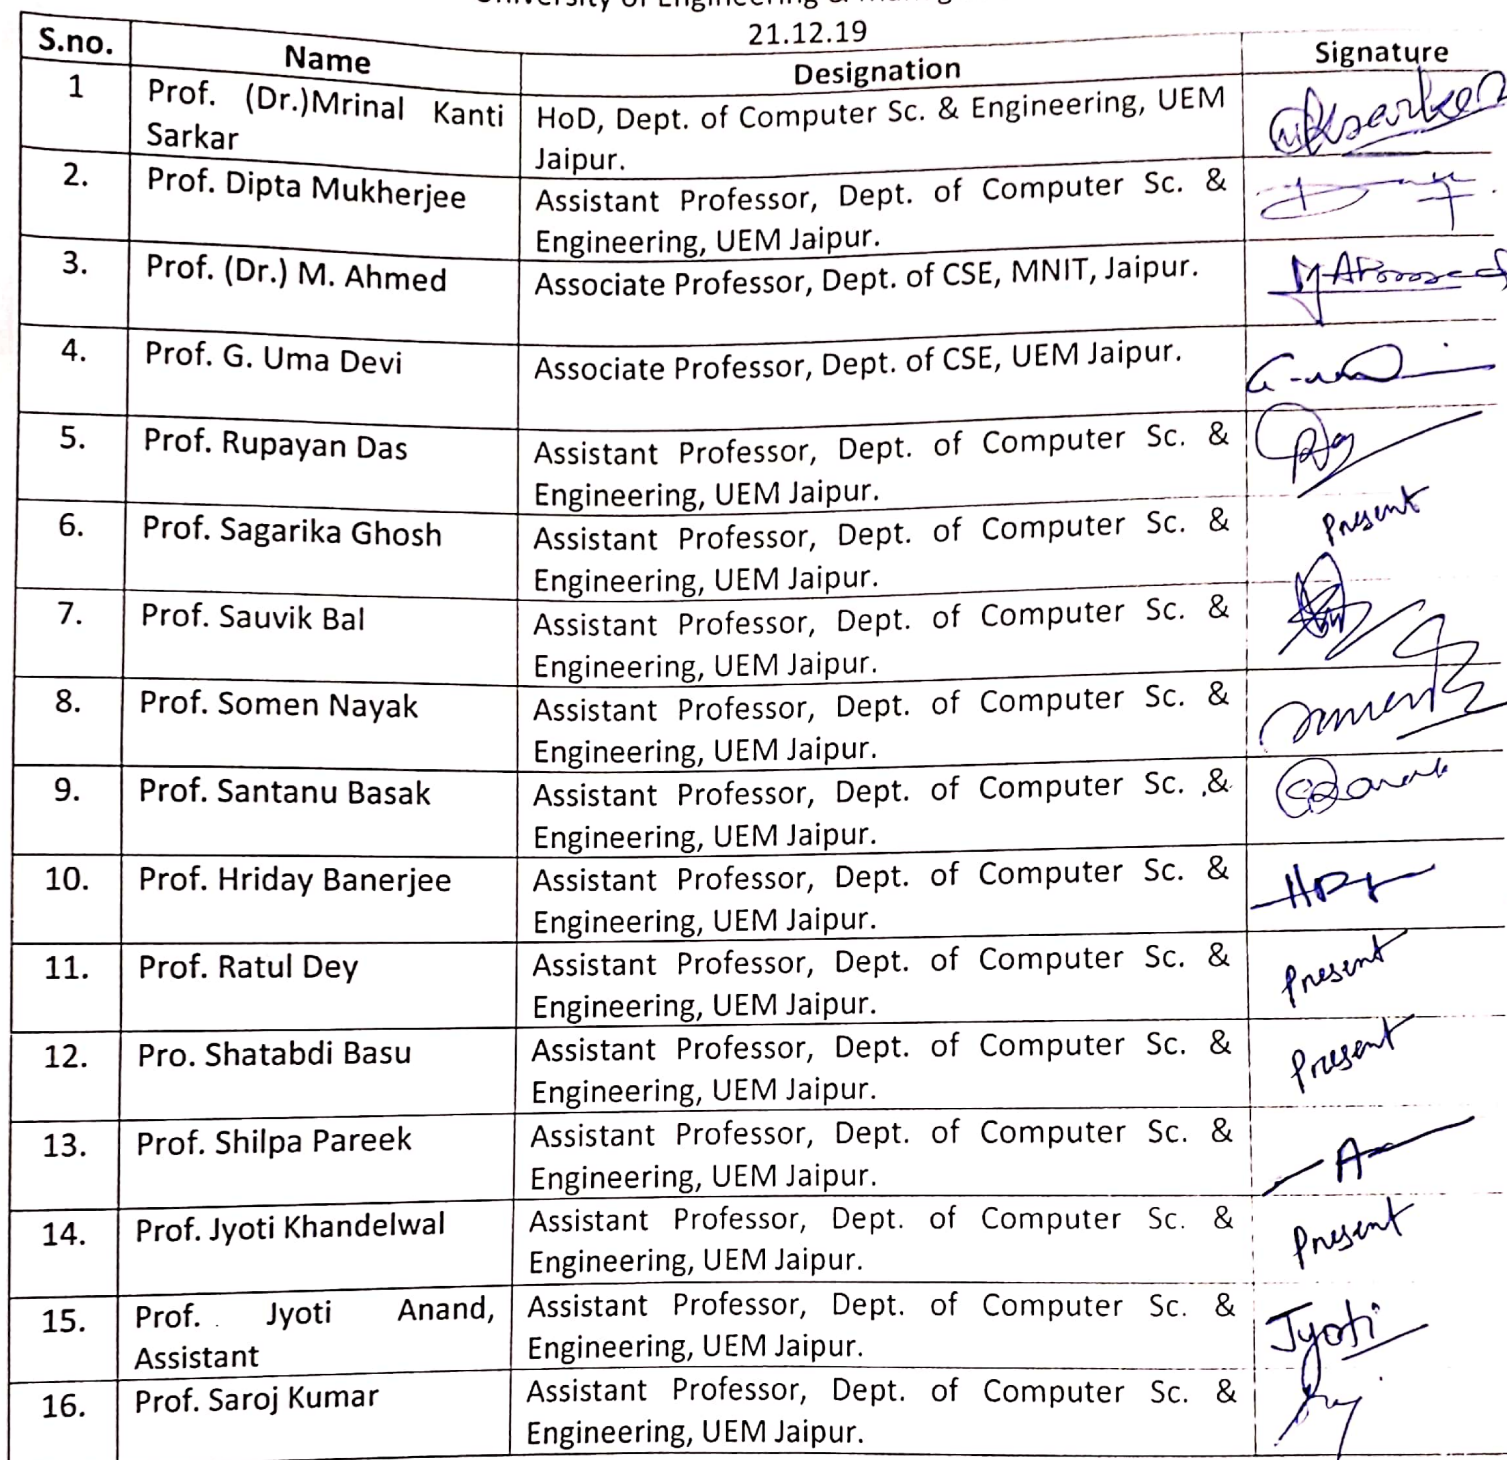 University of Engineering &
21.12.19
S.no. Name Designation Signature
1 Prof. (Dr.)Mrinal Kanti HoD, Dept. of Computer Sc. & Engineering, UEM
Sarkar Jaipur.
2. Prof. Dipta Mukherjee Assistant Professor, Dept. of Computer Sc. &
Engineering, UEM Jaipur.
3. Prof. (Dr.) M. Ahmed Associate Professor, Dept. of CSE, MNIT, Jaipur.
4. Prof. G. Uma Devi Associate Professor, Dept. of CSE, UEM Jaipur.
5. Prof. Rupayan Das Assistant Professor, Dept. of Computer Sc. &
Engineering, UEM Jaipur.
6. Prof. Sagarika Ghosh Assistant Professor, Dept. of Computer Sc. & Present
Engineering, UEM Jaipur.
7. Prof. Sauvik Bal Assistant Professor, Dept. of Computer Sc. &
Engineering, UEM Jaipur.
8. Prof. Somen Nayak Assistant Professor, Dept. of Computer Sc. &
Engineering, UEM Jaipur.
9. Prof. Santanu Basak Assistant Professor, Dept. of Computer Sc. &
Engineering, UEM Jaipur.
10. Prof. Hriday Banerjee Assistant Professor, Dept. of Computer Sc. &
Engineering, UEM Jaipur.
11. Prof. Ratul Dey Assistant Professor, Dept. of Computer Sc. & Present
Engineering, UEM Jaipur.
12. Pro. Shatabdi Basu Assistant Professor, Dept. of Computer Sc. & Present
Engineering, UEM Jaipur.
13. Prof. Shilpa Pareek Assistant Professor, Dept. of Computer Sc. &
Engineering, UEM Jaipur.
14. Prof. Jyoti Khandelwal Assistant Professor, Dept. of Computer Sc. & Present
Engineering, UEM Jaipur.
15. Prof. Jyoti Anand, Assistant Professor, Dept. of Computer Sc. & Jyoti
Assistant Engineering, UEM Jaipur.
16. Prof. Saroj Kumar Assistant Professor, Dept. of Computer Sc. &
Engineering, UEM Jaipur.